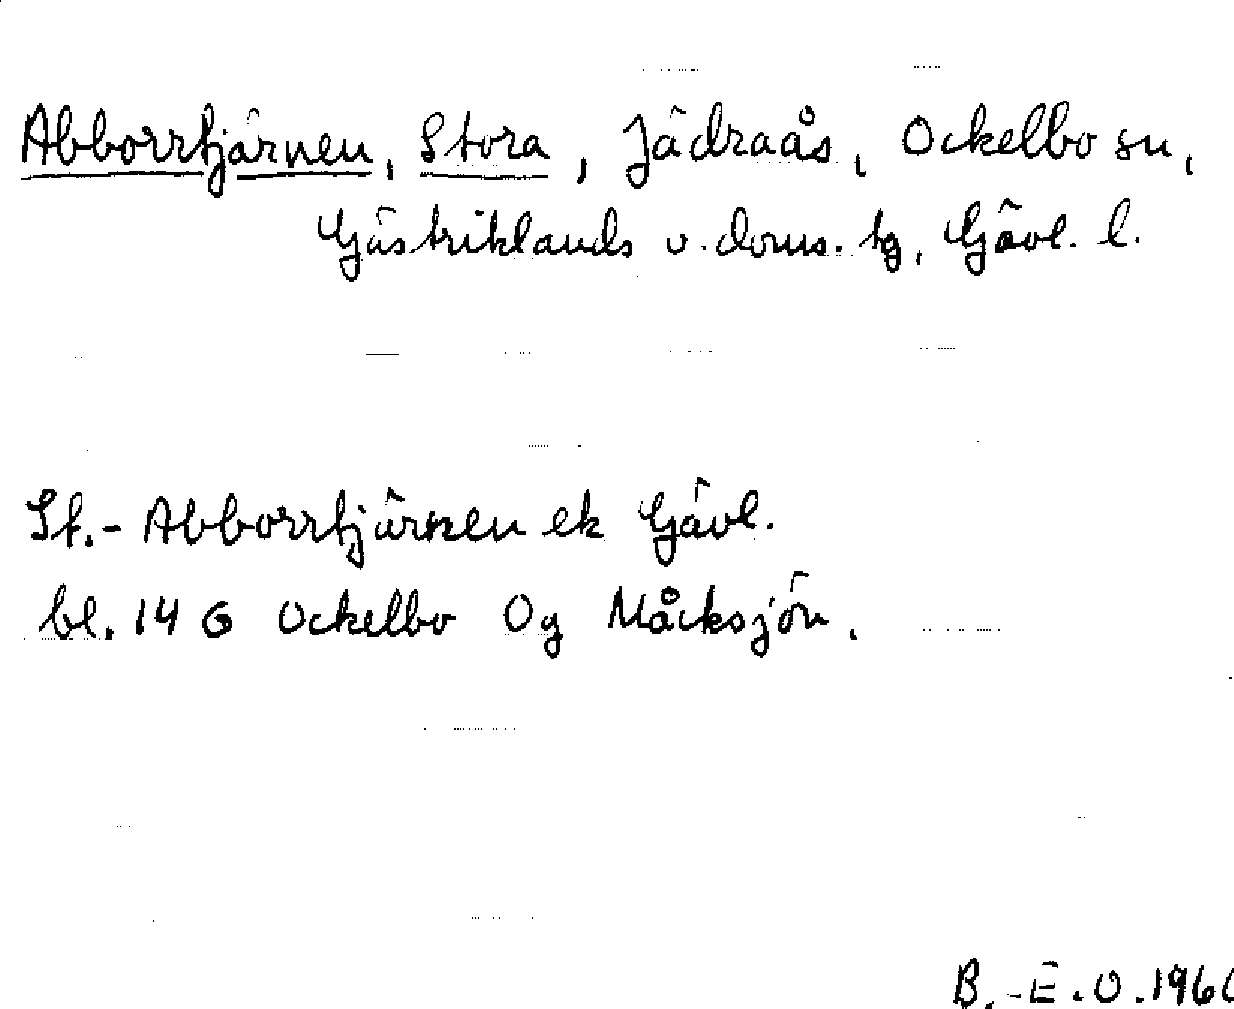 Abborrtjärnen, Stora, Jädraås, Ockelbo sn,
Gästriklands v. doms. tg, Gävl. l.
St.- Abborrtjärnen ek Gävl.
bl. 14 G Ockelbo Og Måcksjön.
B.-E.O. 1960